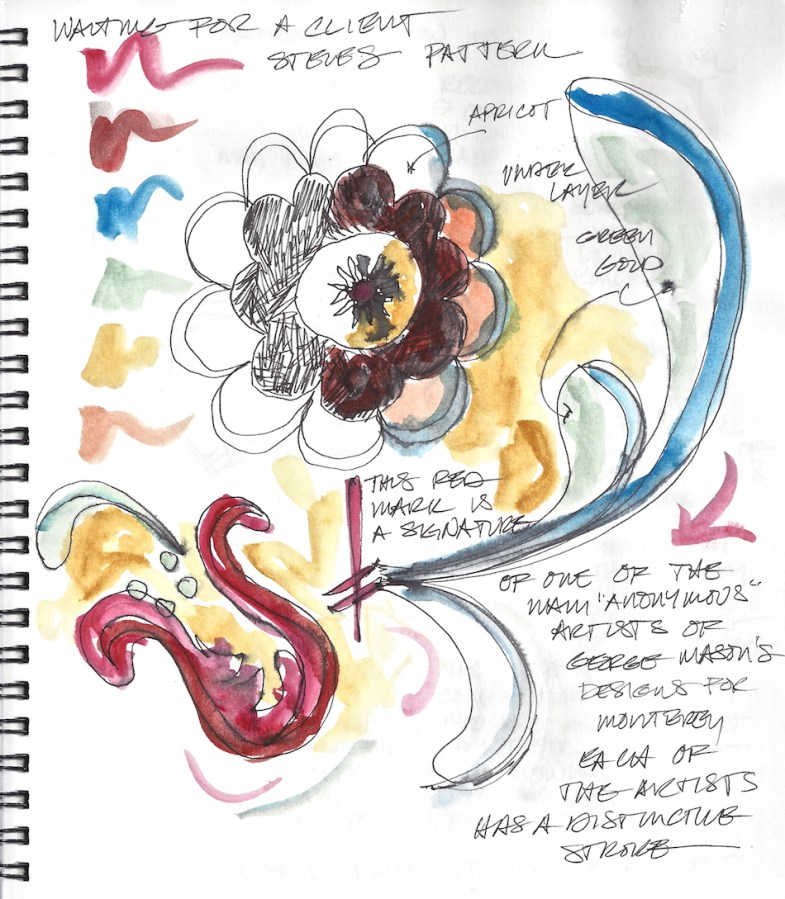 WAITING FOR A CLIENT
STEVE'S PATTERN
APRICOT
UNDER
LAYER
GREEN
GOLD
THIS RED
MARK IS
A SIGNATURE
OF ONE OF THE
MAIN "ANONYMOUS"
ARTISTS OF
GEORGE MASON'S
DESIGNS FOR
MONTEREY
EACH OF
THE ARTISTS
HAS A DISTINCTIVE
STROKE